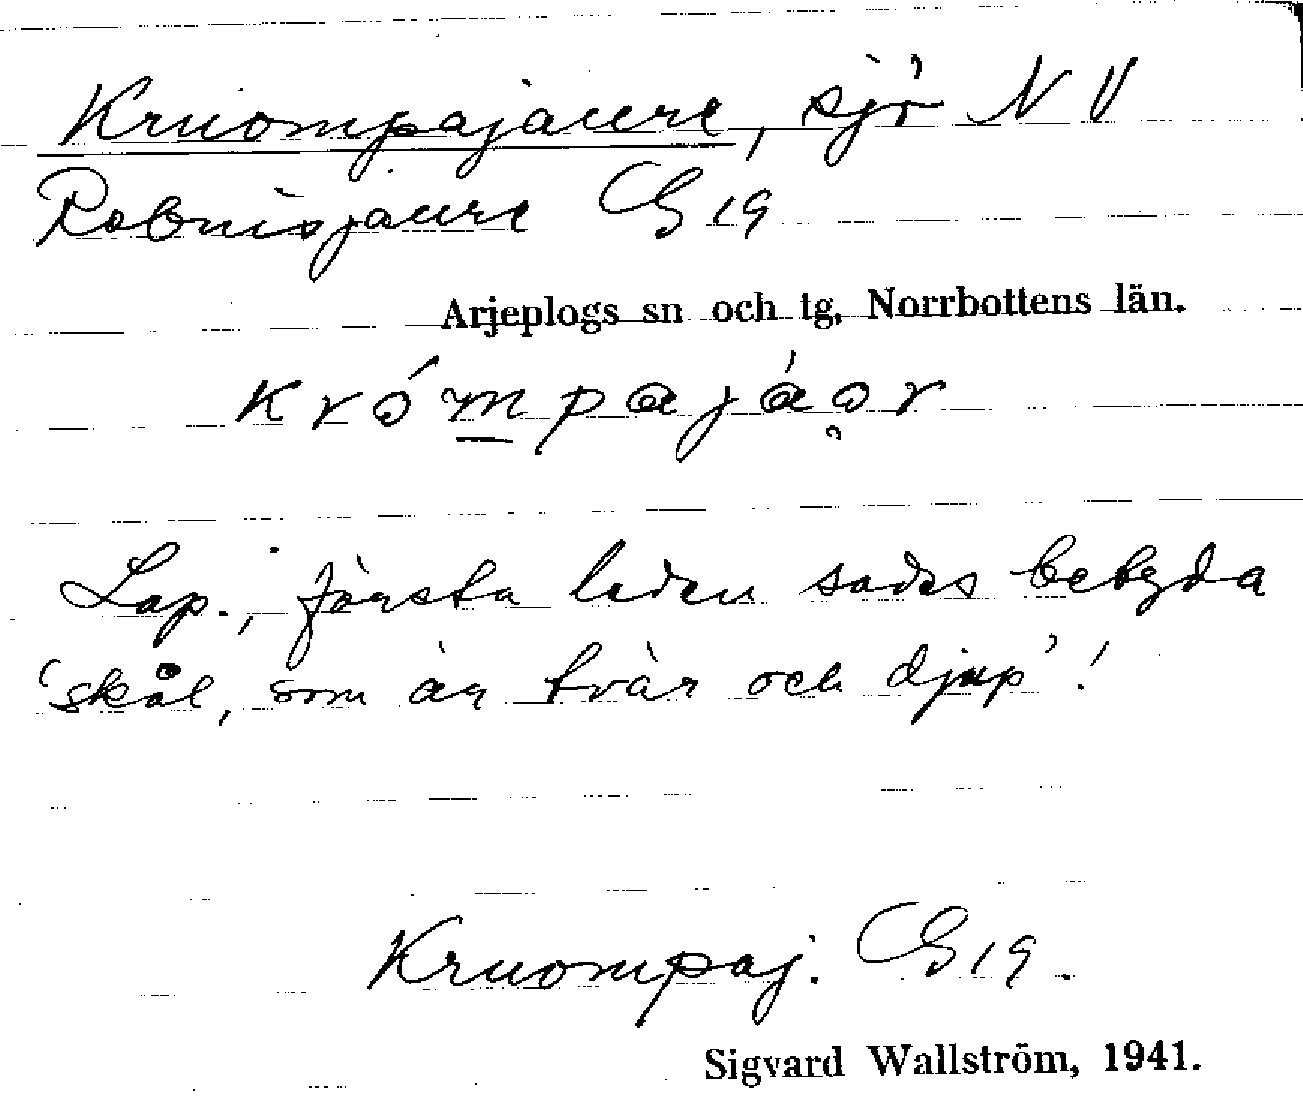 Kruompajaure, sjö N V
Rebnisjaure GS 19
Arjeplogs sn och tg, Norrbottens län.
krómpajáo̥r
Lap.; första leden sades betyda
'skål, som är tvär och djup'!
Kruompaj. GS 19.
Sigvard Wallström, 1941.